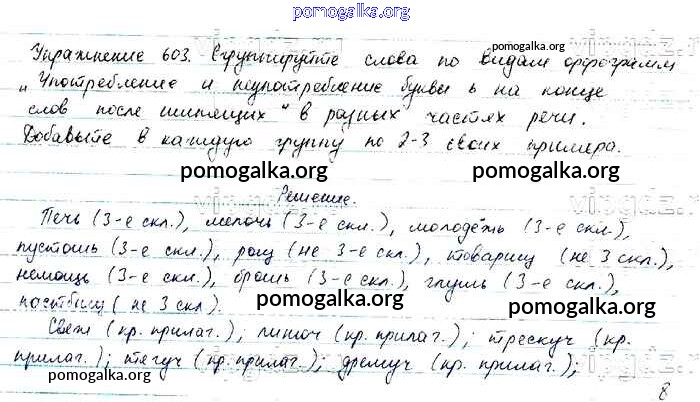 pomogalka.org
Упражнение 603. Сгруппируйте слова по видам орфограмм
pomogalka.org
„Употребление и неупотребление буквы ь на конце
слов после шипящих" в разных частях речи.
Добавьте в каждую группу по 2-3 своих примера.
pomogalka.org pomogalka.org
Решение.
Печь (3-е скл.), мелочь (3-е скл.), молодёжь (3-е скл.),
пустошь (3-е скл.), рощ (не 3-е скл.), товарищ (не 3 скл.),
немощь (3-е скл.), брошь (3-е скл.), глушь (3-е скл.),
пастбищ (не 3 скл).
pomogalka.org pomogalka.org
Свеж (кр. прилаг.); пигюч (кр. прилаг.); трескуч (кр.
прилаг.); тягуч (кр. прилаг.); дремуч (кр. прилаг.);
pomogalka.org
8